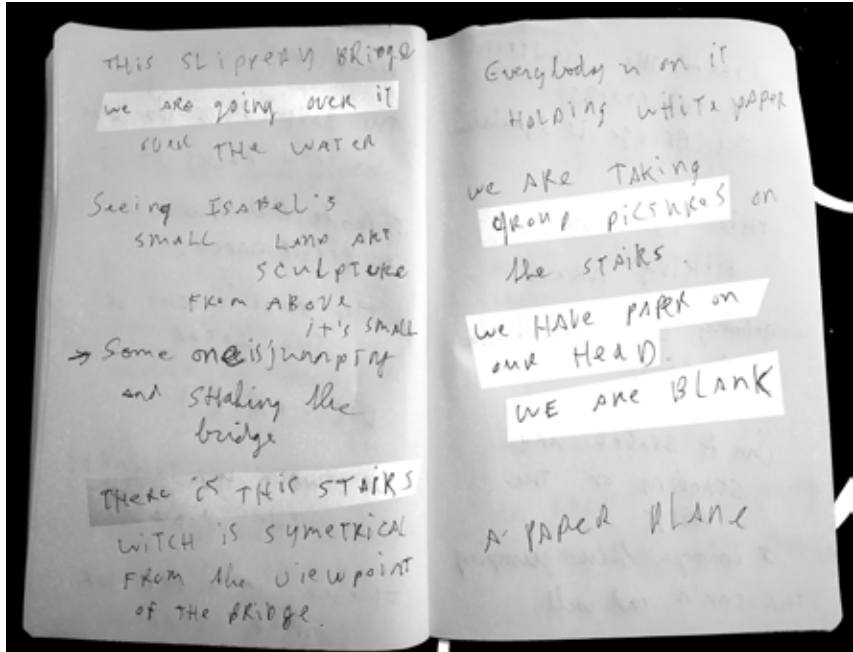 THIS SLIPPERY BRIDGE
we ARE going over it
over THE WATER
Seeing ISABEL'S
SMALL LAND ART
SCULPTURE
FROM ABOVE
it's SMALL
→ Some one is jumping
and SHaking the
bridge
THERE is THIS STAIRS
WITCH IS SYMETRICAL
FROM the VIEWPOINT
OF THE BRIDGE.
Everybody is on it
HOLDING WHITE PAPER
we ARE TAKING
GROUP PICTURES on
the STAIRS
we HAVE PAPER on
our HEAD.
WE ARE BLANK
A PAPER PLANE